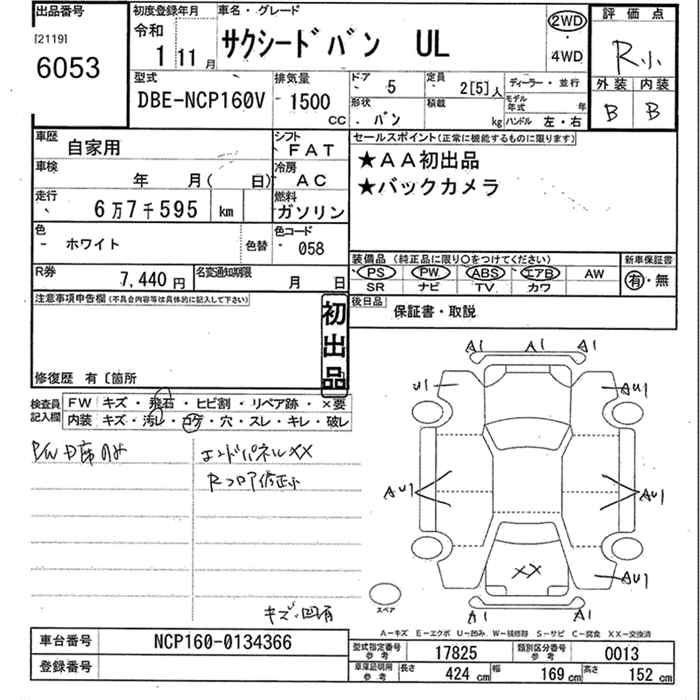 出品番号
[2119]
6053
初度登録年月
令和
1 11月
車名・グレード
サクシードバン UL
2WD
・
4WD
評価点
R小
外装 内装
B B
型式
DBE-NCP160V
排気量
1500
CC
ドア
5
定員
2[5]人
ディーラー・並行
形状
バン
積載
kg
モデル年式 年
ハンドル 左・右
車歴
自家用
シフト
FAT
車検
年 月( 日)
冷房
AC
走行
6万7千595 km
燃料
ガソリン
色
ホワイト
色替
色コード
058
R券
7,440円
名変通知期限
月 日
セールスポイント(正常に機能するものに限ります)
★AA初出品
★バックカメラ
装備品 (純正品に限り〇をつけてください)
PS PW ABS エアB AW
SR ナビ TV カワ
新車保証書
有・無
後日品
保証書・取説
注意事項申告欄(不具合内容等は具体的に記入して下さい)
初出品
修復歴 有〔箇所
検査員記入欄
FW キズ・飛石・ヒビ割・リペア跡・×要
内装 キズ・汚レ・コゲ・穴・スレ・キレ・破レ
エンドパネルXX
Rフロア修正小
キズ・凹有
A1 A1 A1
U1 AU1
AU1 AU1
XX
AU1
A1 A1
スペア
A-キズ E-エクボ U-凹み W-補修跡 S-サビ C-腐食 XX-交換済
車台番号
NCP160-0134366
登録番号
型式指定番号
参考
17825
類別区分番号
参考
0013
車庫証明用
参考
長さ 424 cm 幅 169 cm 高さ 152 cm